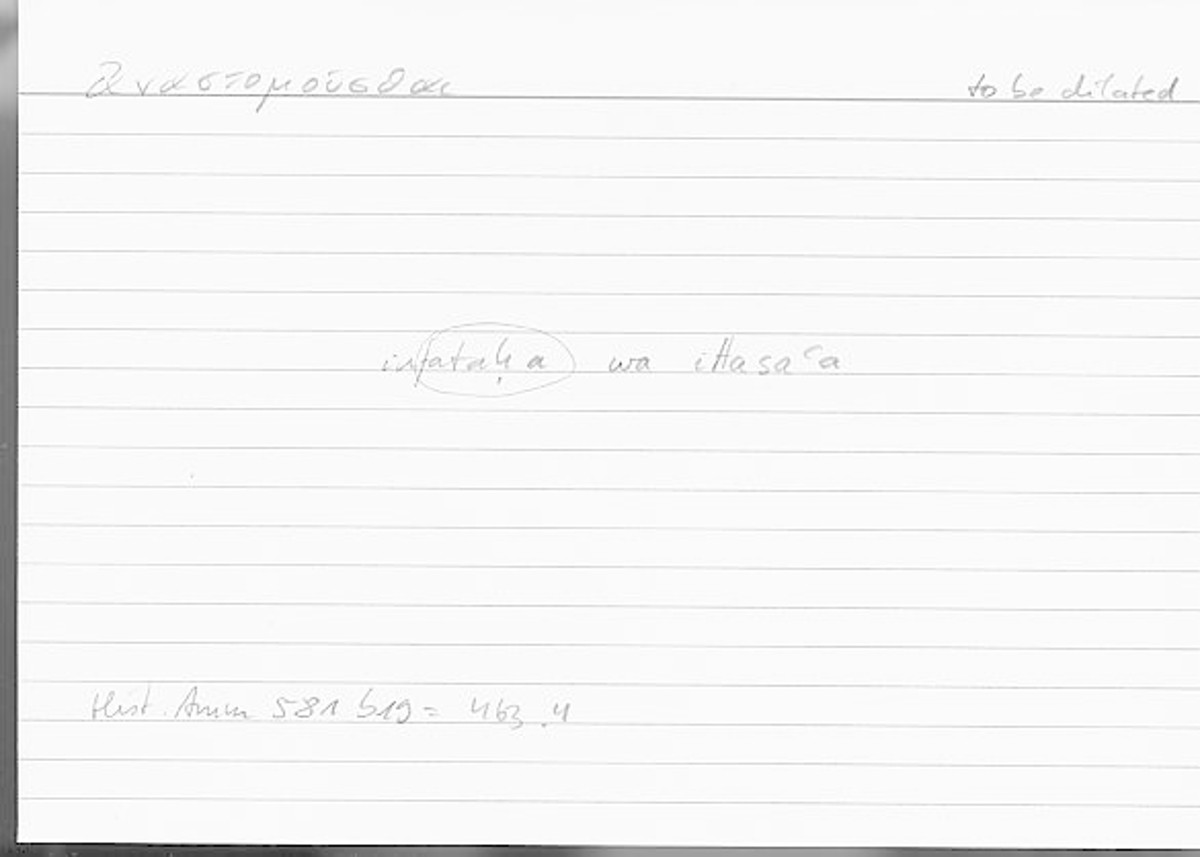 ἀναστομοῦσθαι to be dilated
infataḥa wa ittasaʿa
Hist. Anim 581 b19 = 463.4